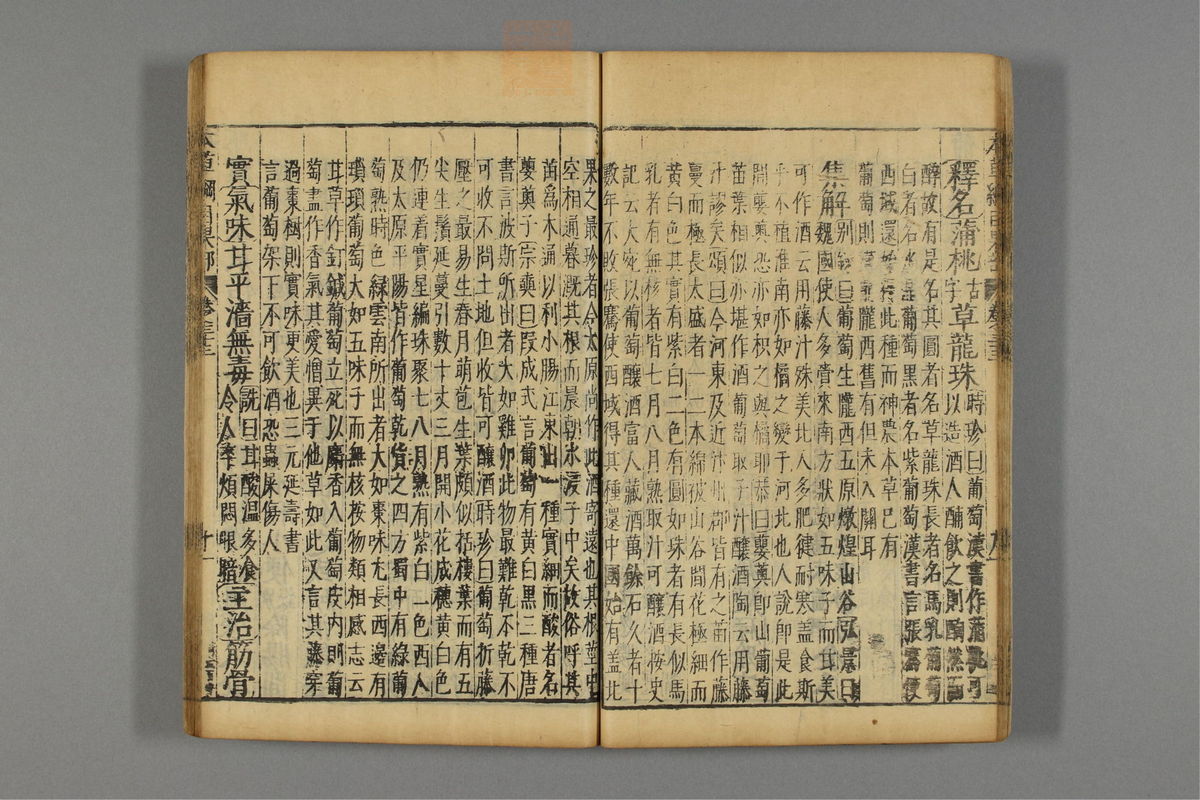 本草綱目果部 卷三十三
釋名蒲桃古字草龍珠時珍曰葡萄漢書作蒲桃可
以造酒人酺飲之則醄然而
醉故有是名其圓者名草龍珠長者名馬乳葡萄
白者名水晶葡萄黑者名紫葡萄漢書言張騫使
西域還始得此種而神農本草已有
葡萄則漢前隴西舊有但未入關耳
集解别錄曰葡萄生隴西五原燉煌山谷弘景曰
魏國使人多賫來南方狀如五味子而甘美
可作酒云用藤汁殊美北人多肥健耐寒盖食斯
乎不植淮南亦如橘之變于河北也人說卽是此
間蘡薁恐亦如枳之與橘耶恭曰蘡薁卽山葡萄
苗葉相似亦堪作酒葡萄取子汁釀酒陶云用藤
汁謬矣頌曰今河東及近汴州郡皆有之苗作藤
蔓而極長太盛者一二本綿被山谷間花極細而
黄白色其實有紫白二色有圓如珠者有長似馬
乳者有無核者皆七月八月熟取汁可釀酒按史
記云大宛以葡萄釀酒富人藏酒萬餘石久者十
數年不敗張騫使西域得其種還中國始有盖北
果之最珍者今太原尚作此酒寄遠也其根莖中
空相通暮漑其根而晨朝水浸子中矣故俗呼其
苗爲木通以利小腸江東出一種實細而酸者名
蘡薁子宗奭曰段成式言葡萄有黄白黑三種唐
書言波斯所出者大如雞卵此物最難乾不乾不
可收不問土地但收皆可釀酒時珍曰葡萄折藤
壓之最易生春月萌苞生葉頗似栝樓葉而有五
尖生鬚延蔓引數十丈三月開小花成穗黄白色
仍連着實星編珠聚七八月熟有紫白二色西人
及太原平陽皆作葡萄乾貨之四方蜀中有綠葡
萄熟時色綠雲南所出者大如棗味尤長西邊有
瑣瑣葡萄大如五味子而無核按物類相感志云
甘草作釘鍼葡萄立死以麝香入葡萄皮内則葡
萄盡作香氣其愛憎異于他草如此又言其藤穿
過棗樹則實味更美也三元延壽書
言葡萄架下不可飲酒恐蟲屎傷人
實氣味甘平濇無毒詵曰甘酸温多食
令人卒煩悶眼暗主治筋骨
本草綱目果部 卷三十三 十一